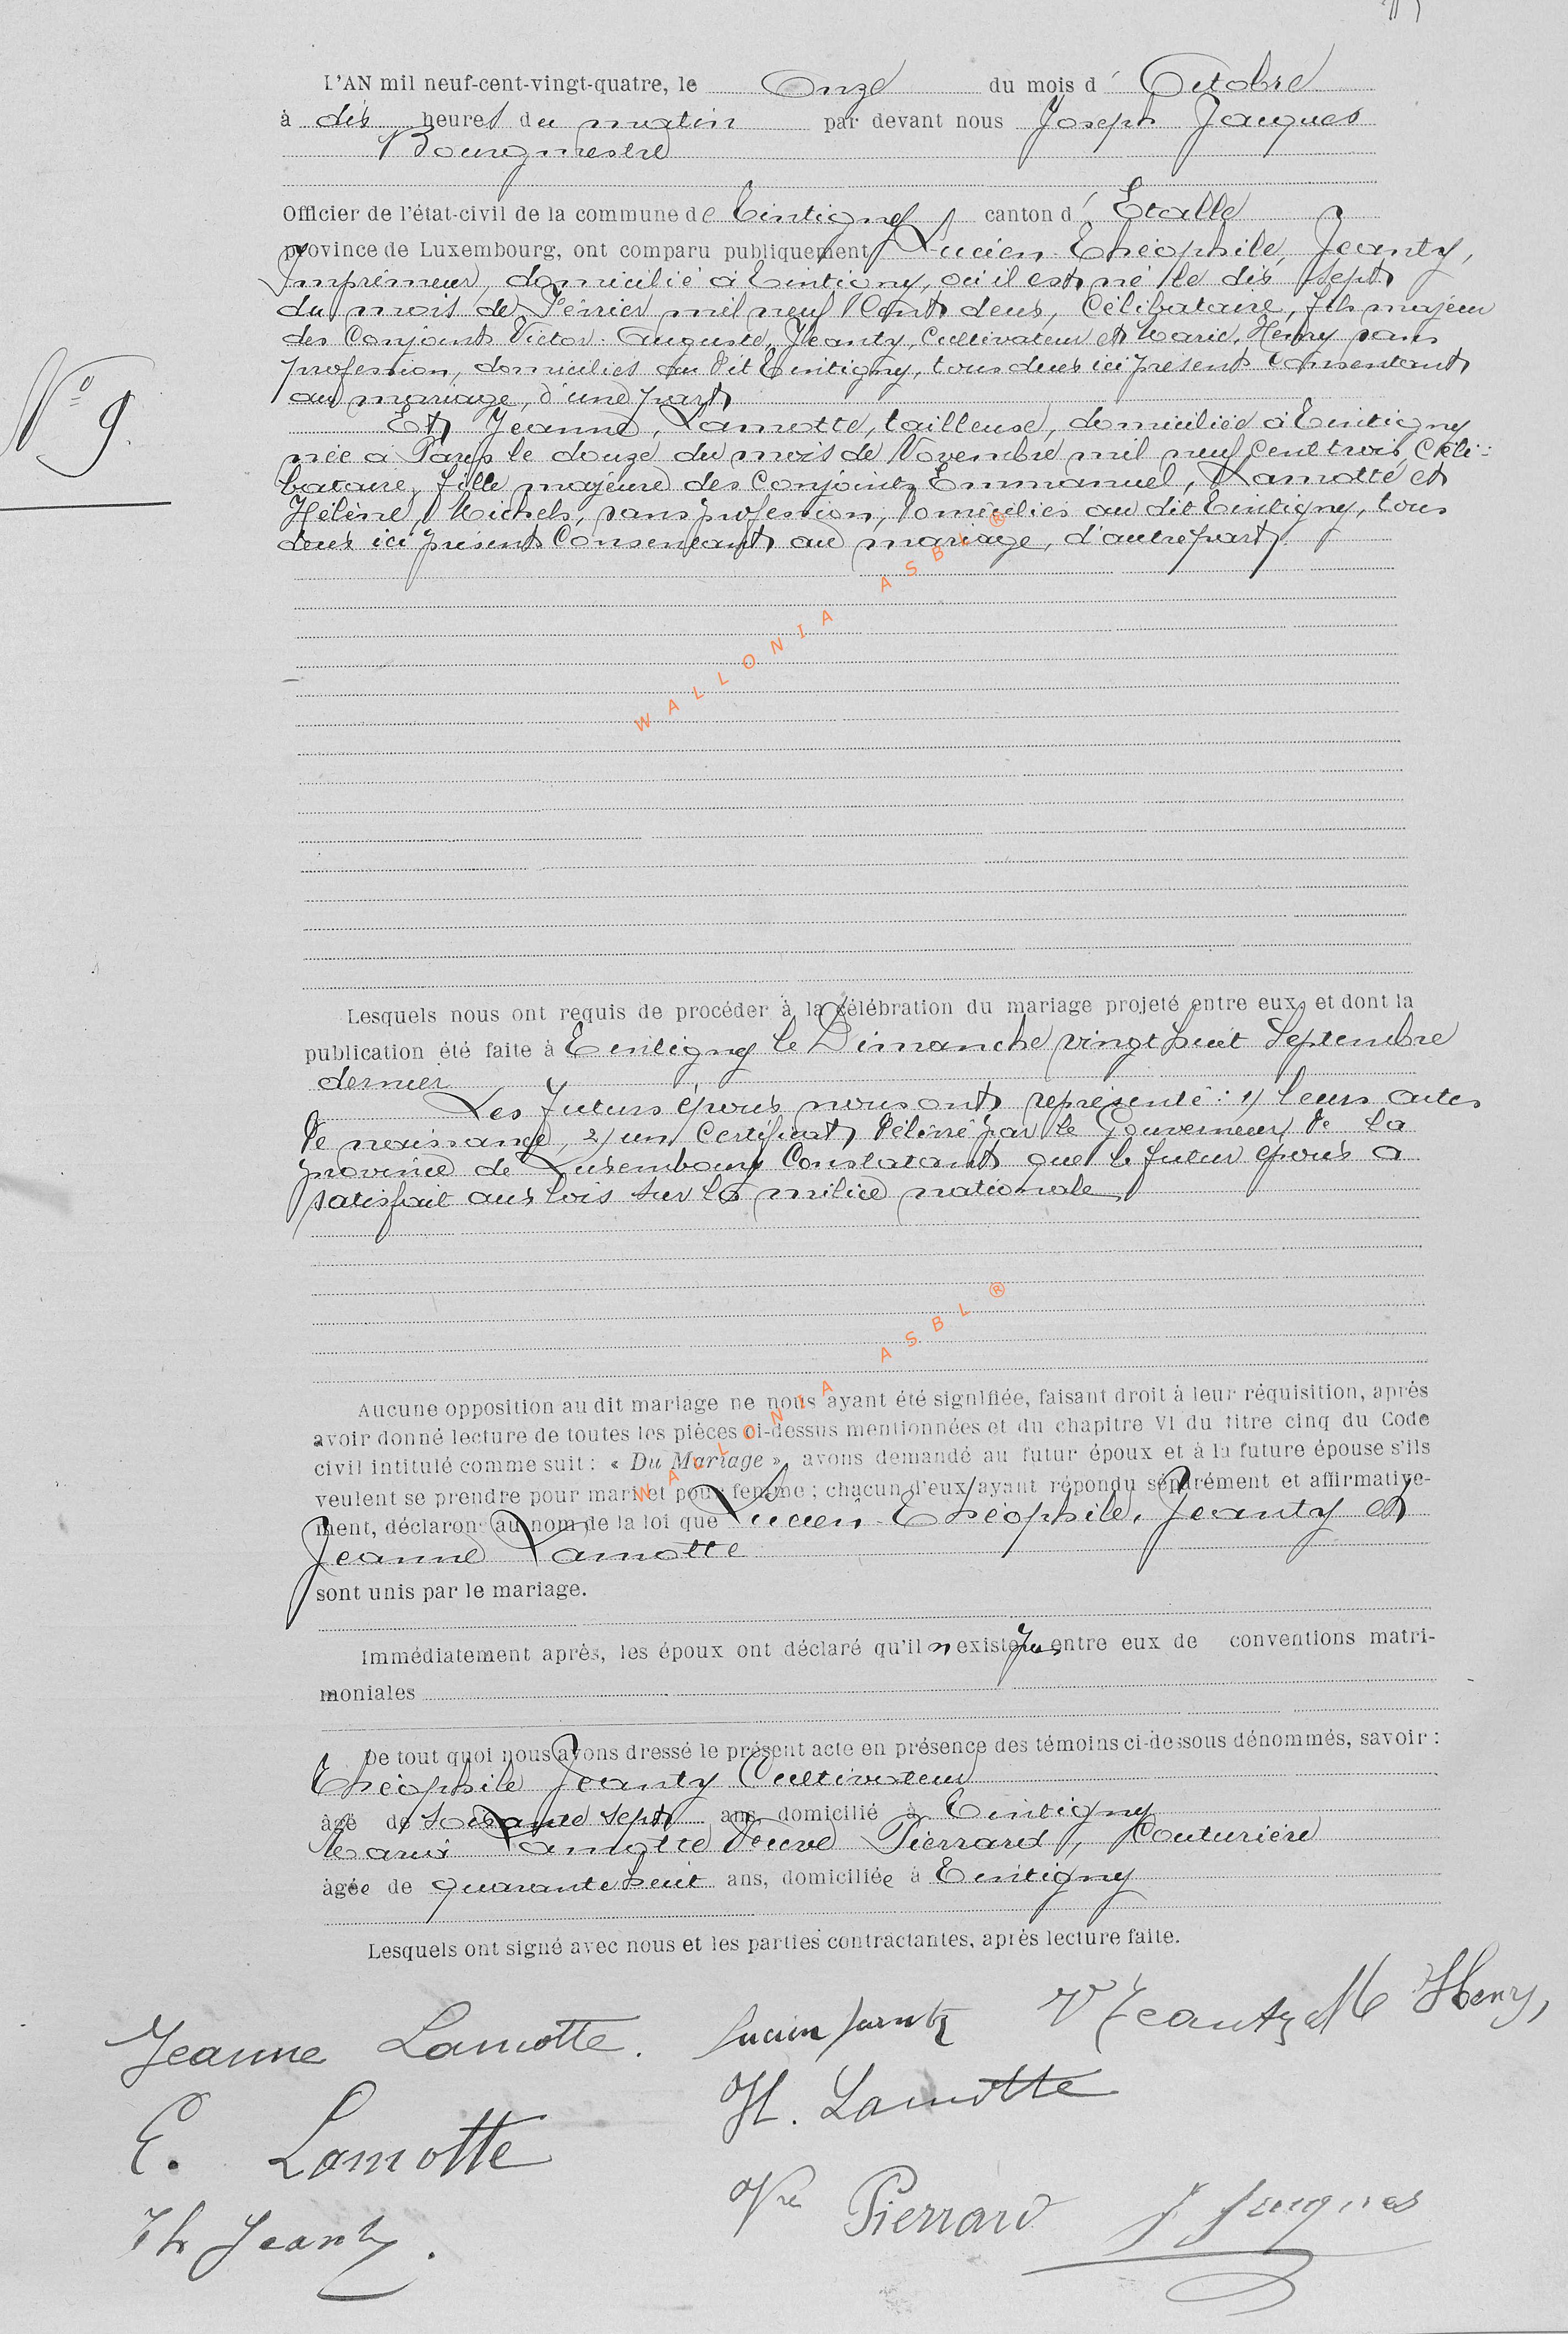 L'AN mil neuf-cent-vingt-quatre, le Onze du mois d' Octobre
à dix heures du matin par devant nous Joseph Jacques
Bourgmestre
Officier de l'état-civil de la commune de Tintigny canton d' Etalle
province de Luxembourg, ont comparu publiquement Lucien-Théophile, Jeanty,
Imprimeur, domicilié à Tintigny, où il est né le dix sept
du mois de Février mil neuf Cent deux, Célibataire, fils majeur
des Conjoints Victor-Auguste, Jeanty, Cultivateur et Marie, Henry sans
profession, domiciliés au dit Tintigny, tous deux ici présents Consentants
au mariage, d'une part
Et Jeanne, Lamotte, tailleuse, domiciliée à Tintigny
née à Paris le douze du mois de Novembre mil neuf Cent trois, Céli-
bataire, fille majeure des Conjoints Emmanuel, Lamotte et
Hélène, Michels, sans profession, domiciliés au dit Tintigny, tous
deux ici présents Consentants au mariage, d'autre part
N° 9.
WALLONIA ASBL ®
Lesquels nous ont requis de procéder à la célébration du mariage projeté entre eux, et dont la
publication été faite à Tintigny le Dimanche vingt huit Septembre
dernier
Les futurs époux nous ont représenté : 1) leurs actes
de naissance, 2) un Certificat délivré par le Gouverneur de la
province de Luxembourg Constatant que le futur époux a
satisfait aux lois sur la milice nationale
WALLONIA ASBL ®
Aucune opposition au dit mariage ne nous ayant été signifiée, faisant droit à leur réquisition, après
avoir donné lecture de toutes les pièces ci-dessus mentionnées et du chapitre VI du titre cinq du Code
civil intitulé comme suit : « Du Mariage », avons demandé au futur époux et à la future épouse s'ils
veulent se prendre pour mari et pour femme ; chacun d'eux ayant répondu séparément et affirmative-
ment, déclaron au nom de la loi que Lucien-Théophile, Jeanty et
Jeanne Lamotte
sont unis par le mariage.
Immédiatement après, les époux ont déclaré qu'il n existe pas entre eux de conventions matri-
moniales
De tout quoi nous avons dressé le présent acte en présence des témoins ci-dessous dénommés, savoir :
Théophile Jeanty Cultivateur
âgé de soixante sept ans domicilié à Tintigny
Maria Lamotte Veuve Pierrard, Couturière
âgée de quarante huit ans, domiciliée à Tintigny
Lesquels ont signé avec nous et les parties contractantes, après lecture faite.
Jeanne Lamotte. Lucien Jeanty V Jeanty M Henry,
E. Lamotte H. Lamotte
Th Jeanty. Vve Pierrard J Jacques